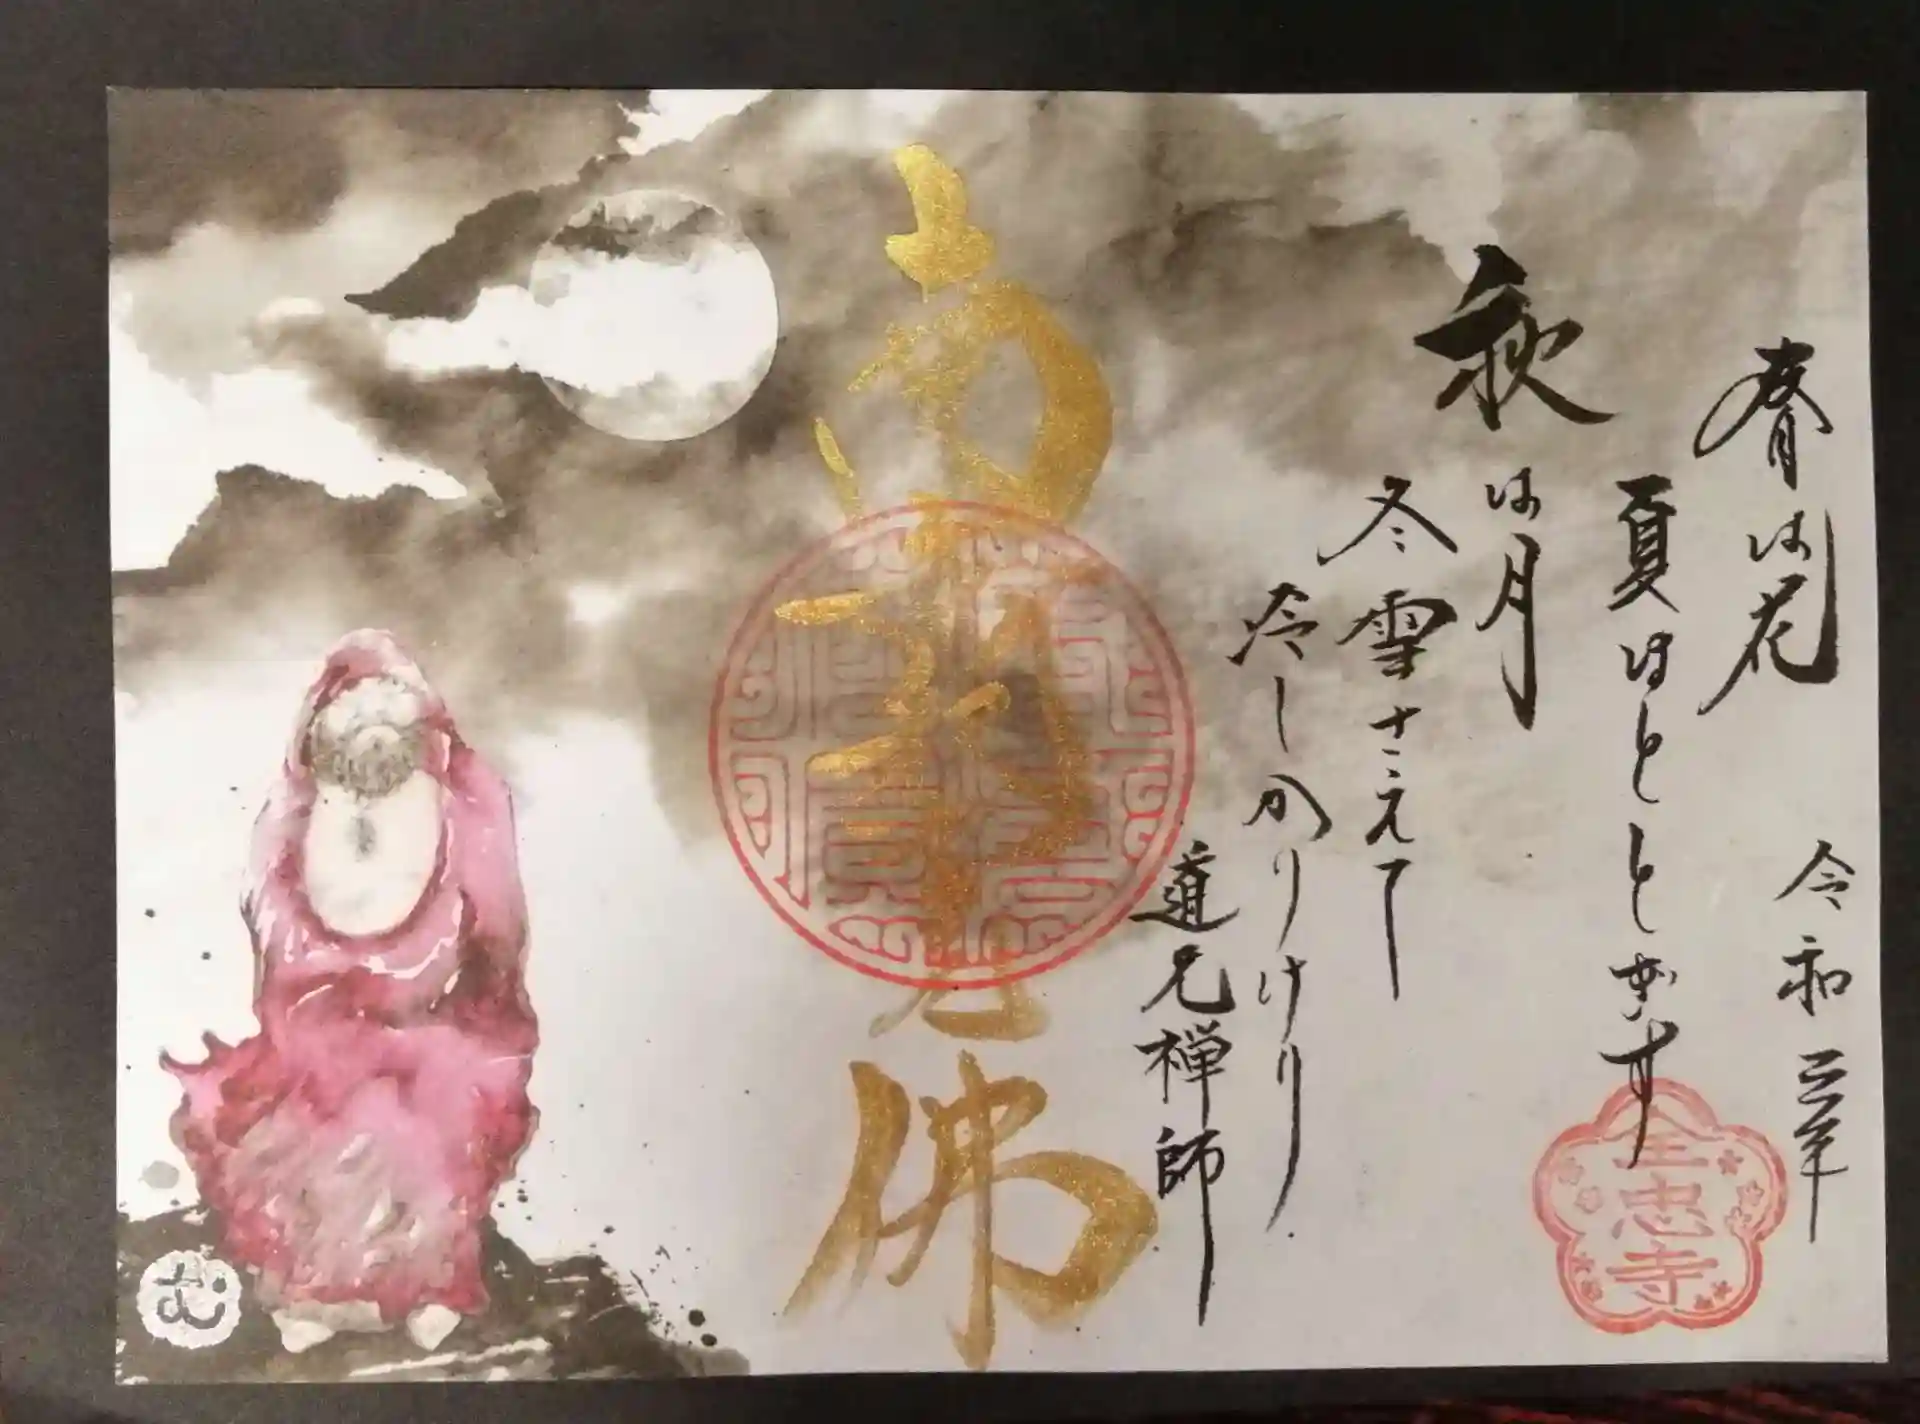 令和三年
春は花
夏ほととぎす
秋は月
冬雪さえて
冷しかりけり
道元禅師
南無釈迦牟尼佛
全忠寺
む